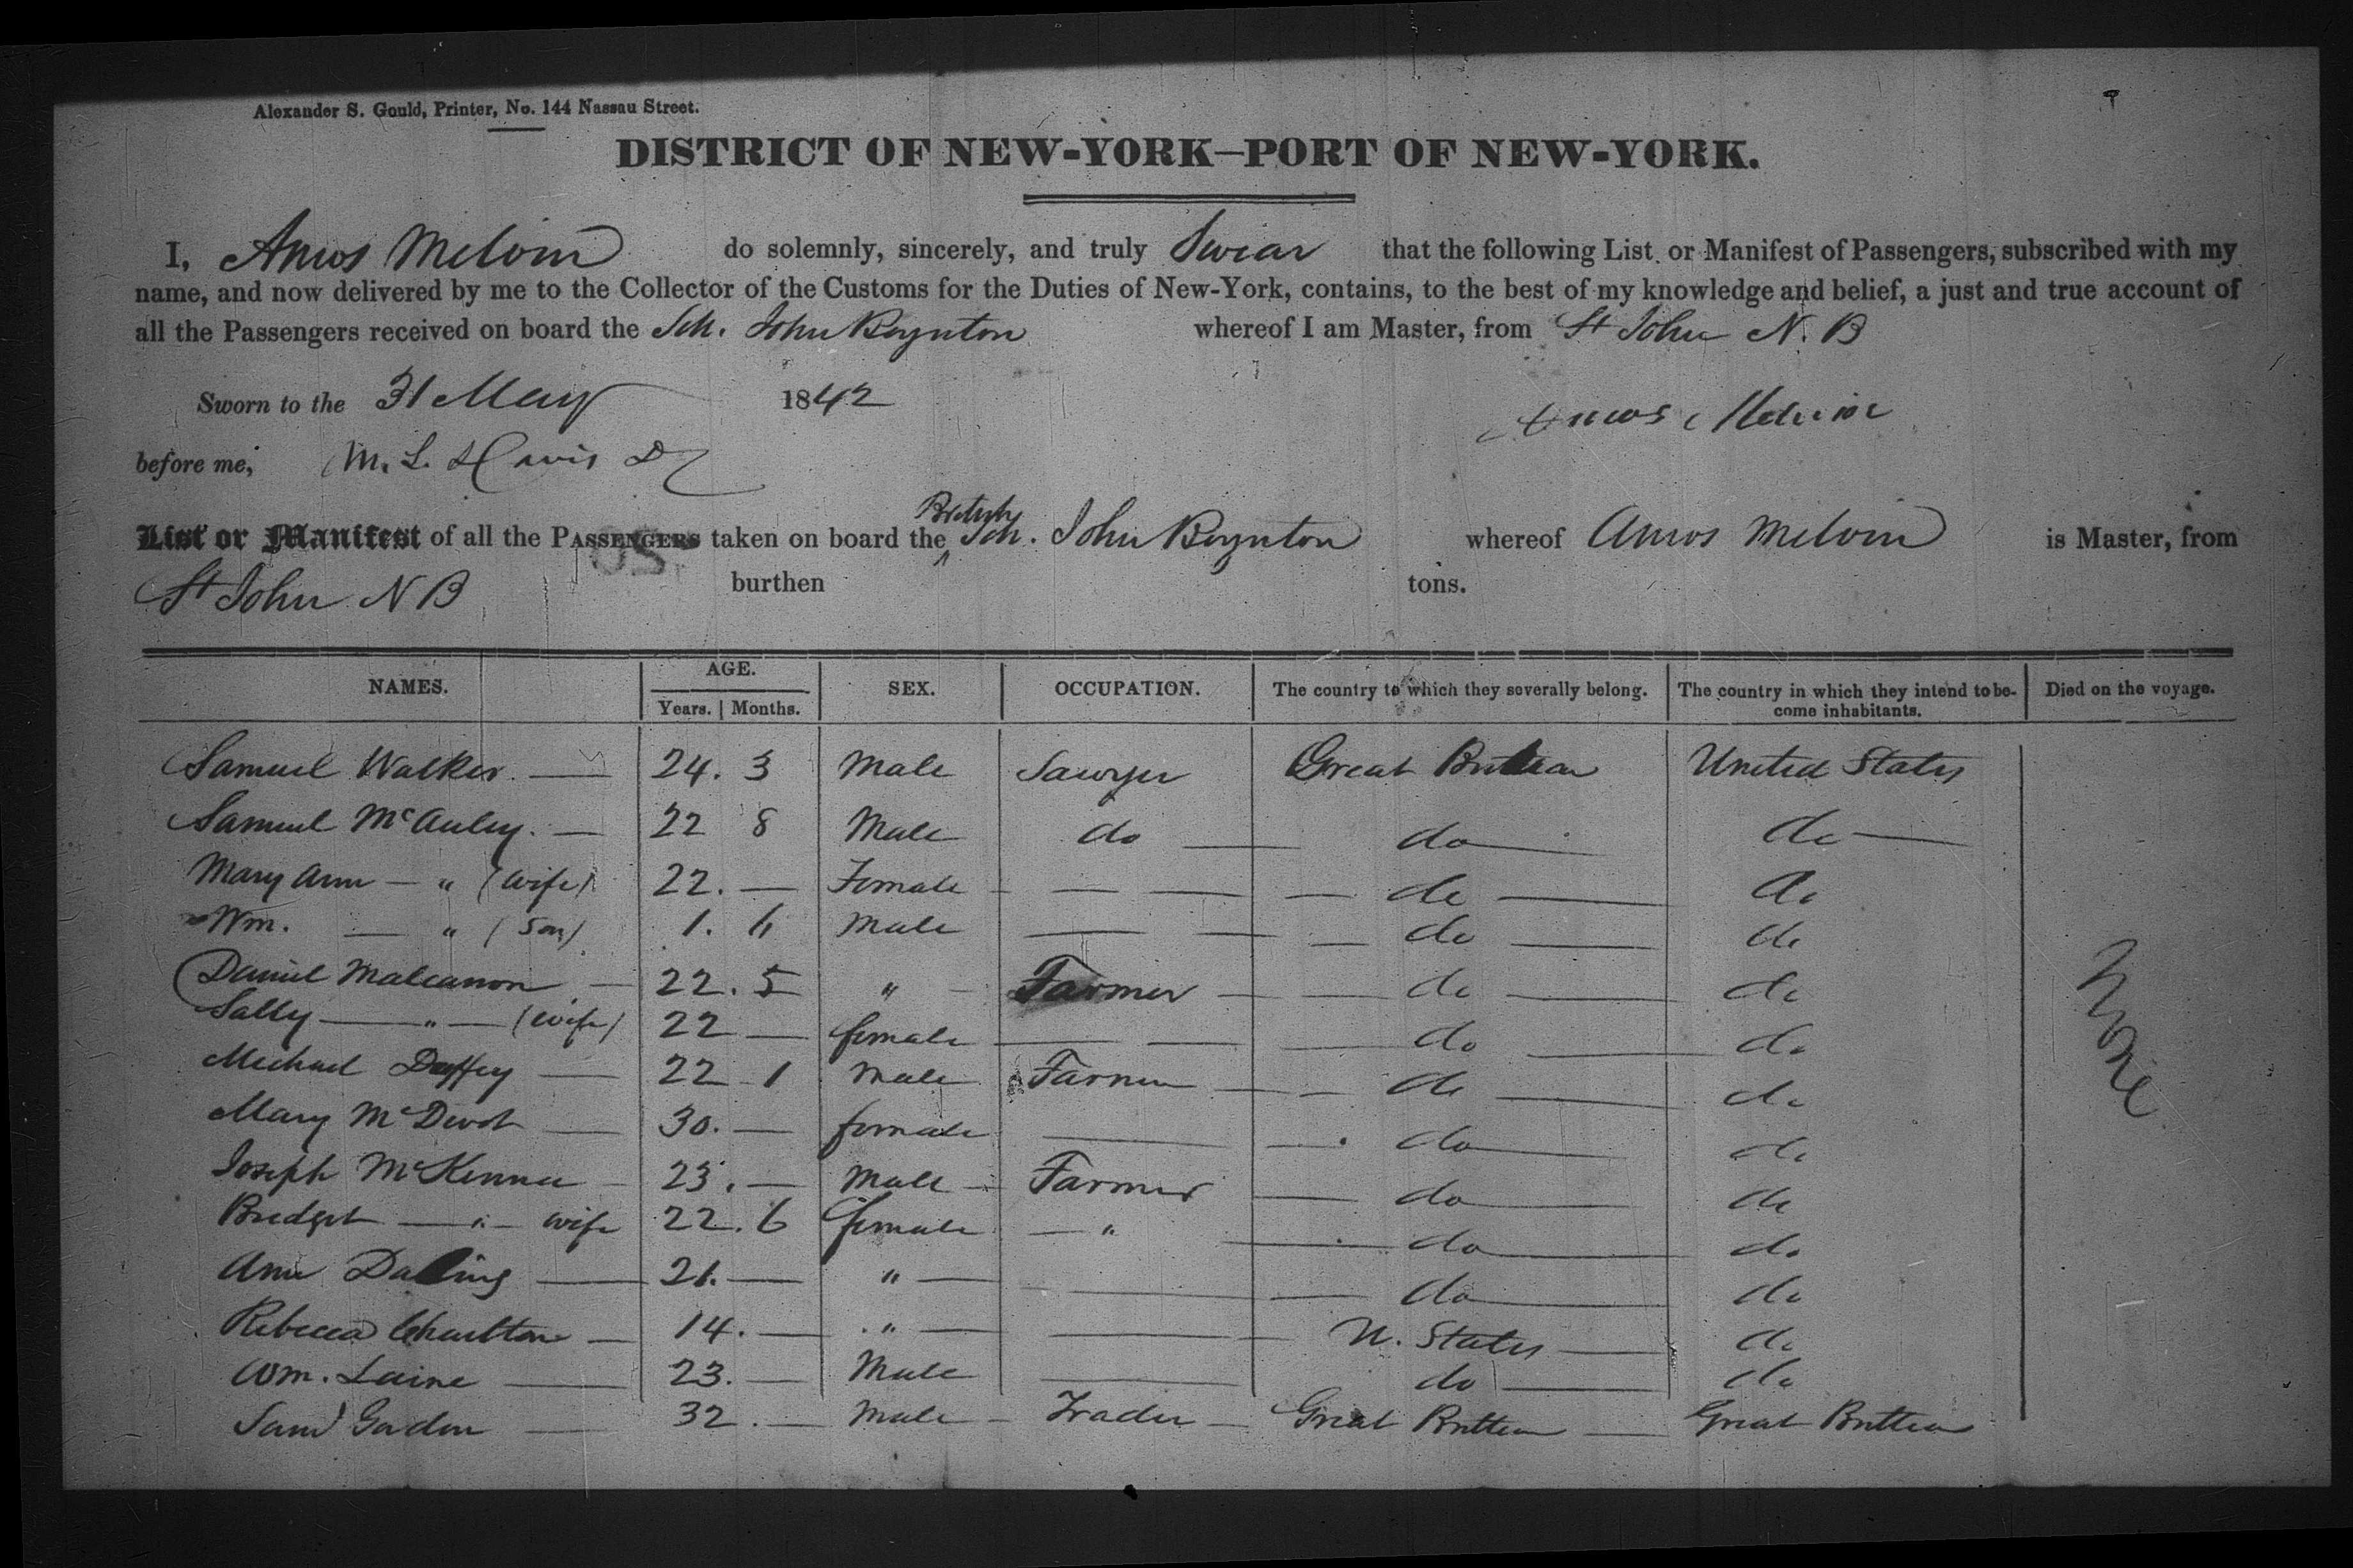 Alexander S. Gould, Printer, No. 144 Nassau Street.
DISTRICT OF NEW-YORK—PORT OF NEW-YORK.
I, Amos Melvin do solemnly, sincerely, and truly Swear that the following List or Manifest of Passengers, subscribed with my
name, and now delivered by me to the Collector of the Customs for the Duties of New-York, contains, to the best of my knowledge and belief, a just and true account of
all the Passengers received on board the Sch. John Boynton whereof I am Master, from St John N. B
Sworn to the 31 May 1842
Amos Melvin
before me, M. L. Davis
List or Manifest of all the PASSENGERS taken on board the British Sch. John Boynton whereof Amos Melvin is Master, from
St John N B burthen tons.
NAMES. AGE. Years. Months. SEX. OCCUPATION. The country to which they severally belong. The country in which they intend to become inhabitants. Died on the voyage.
Samuel Walker — 24. 3 Male Sawyer Great Brittain United States
Samuel McAuley. — 22 8 Male do do do
Mary Ann — " (wife) 22. — Female — — do do
Wm. — " (Son) 1. 6 Male — — do do
Daniel — 22. 5 " Farmer — do do
Sally — " — (wife) 22 — female — do do
Michael Duffey — 22 1 Male Farmer — do do
Mary McDevot — 30. — female — do do
Joseph McKenna — 23. — Male Farmer — do do
Bredget — " — wife 22. 6 female — " — do do
Ann Darling — 21. — " — do do
Rebecca Charlton — 14. — " — U. States do
Wm. Laine — 23. — Male — do do
Saml Gordon — 32. — Male — Trader — Great Brittain — Great Brittain
None